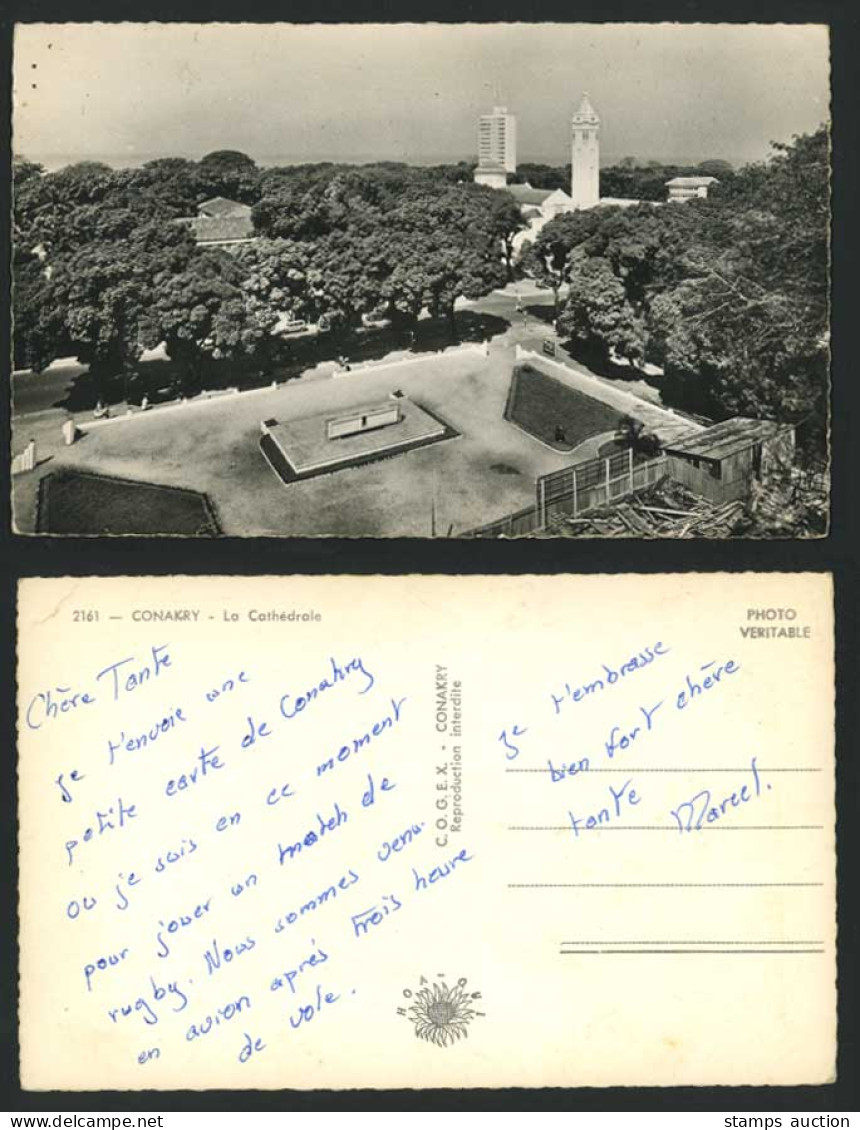 2161 — CONAKRY - La Cathédrale
PHOTO
VERITABLE
Chère Tante
Je t'envoie une
petite carte de Conakry
ou je suis en ce moment
pour jouer un match de
rugby. Nous sommes venu
en avion après trois heure
de vole.
C.O.G.E.X. - CONAKRY
Reproduction interdite
Je t'embrasse
bien fort chère
tante
Marcel.
HOA-QUI
stamps auction